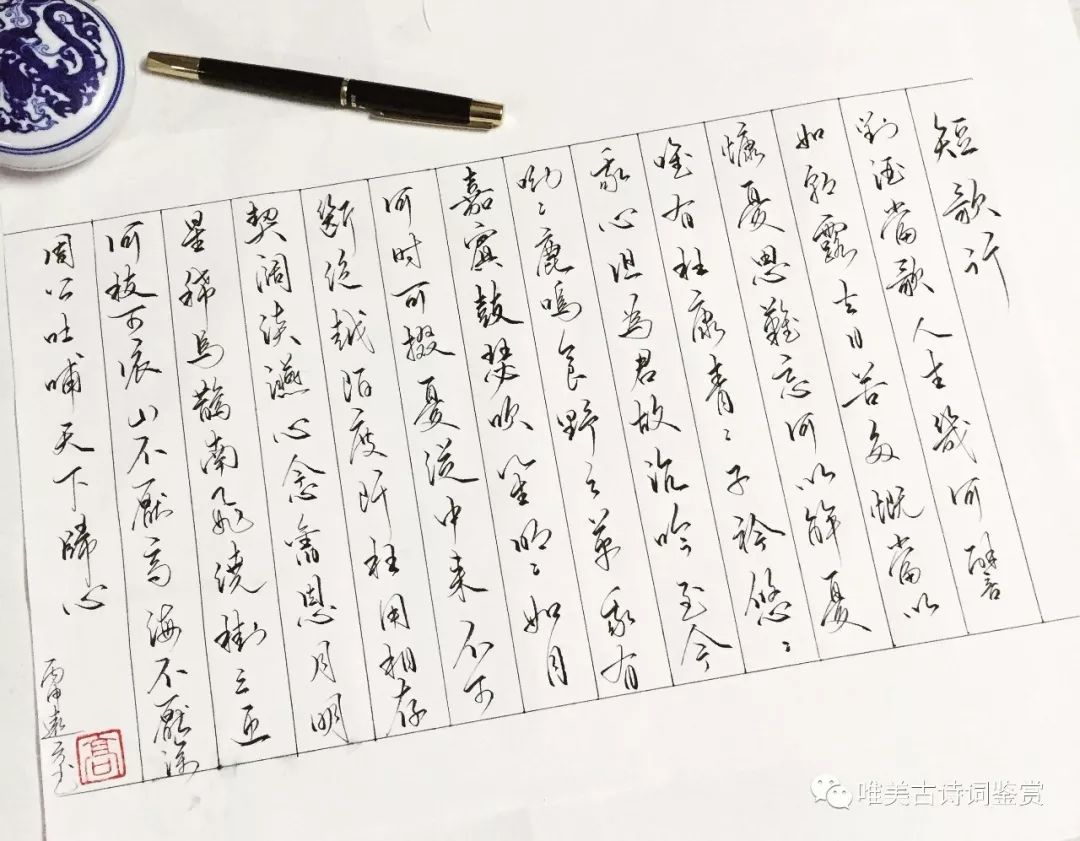 短歌行
對酒當歌人生幾何譬
如朝露去日苦多慨當以
慷憂思難忘何以解憂
唯有杜康青〻子衿悠〻
我心但為君故沉吟至今
呦〻鹿鳴食野之苹我有
嘉賓鼓瑟吹笙明〻如月
何时可掇憂從中来不可
斷絕越陌度阡枉用相存
契闊談讌心念舊恩月明
星稀烏鵲南飛繞樹三匝
何枝可依山不厭高海不厭深
周公吐哺天下歸心
丙申
高
唯美古诗词鉴赏